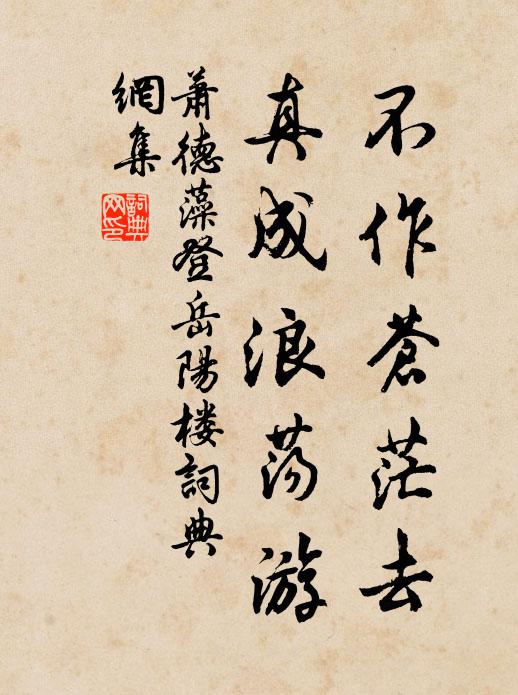 不作蒼茫去
真成浪荡游
萧德藻登岳陽楼詞典
網集
詞典
网印